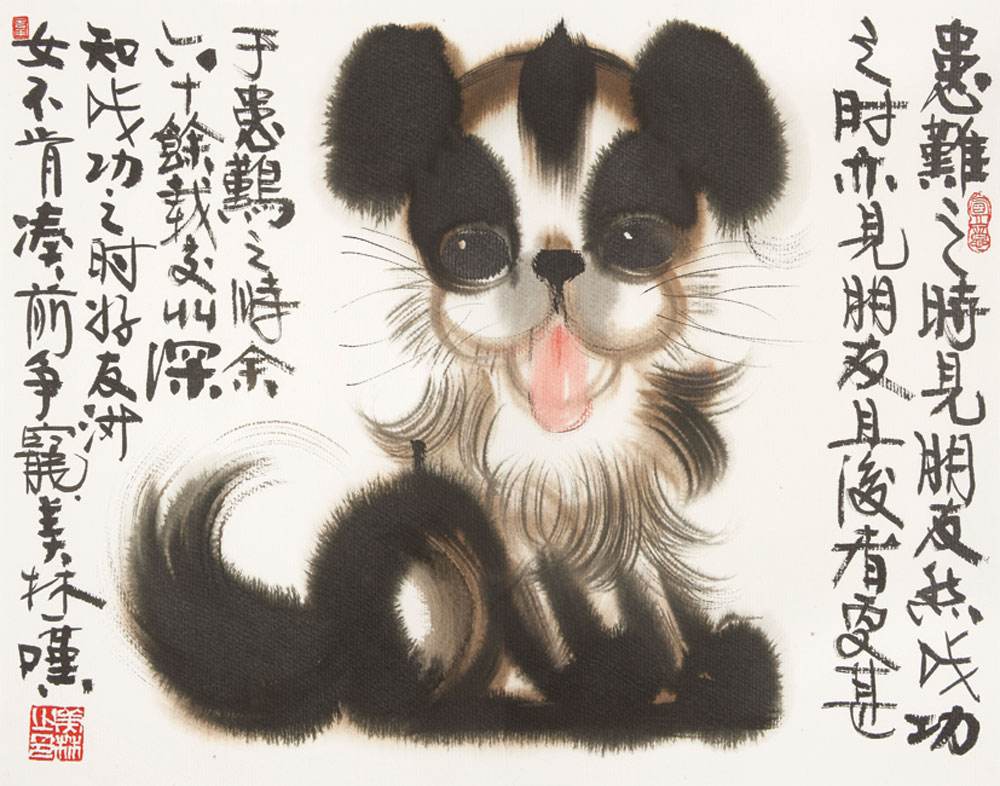 患難之時見朋友然成功
之时亦見朋友且後者更甚
于患難之時余
六十餘载交深
知成功之时好友
女不肯凑前争寵美林嘆